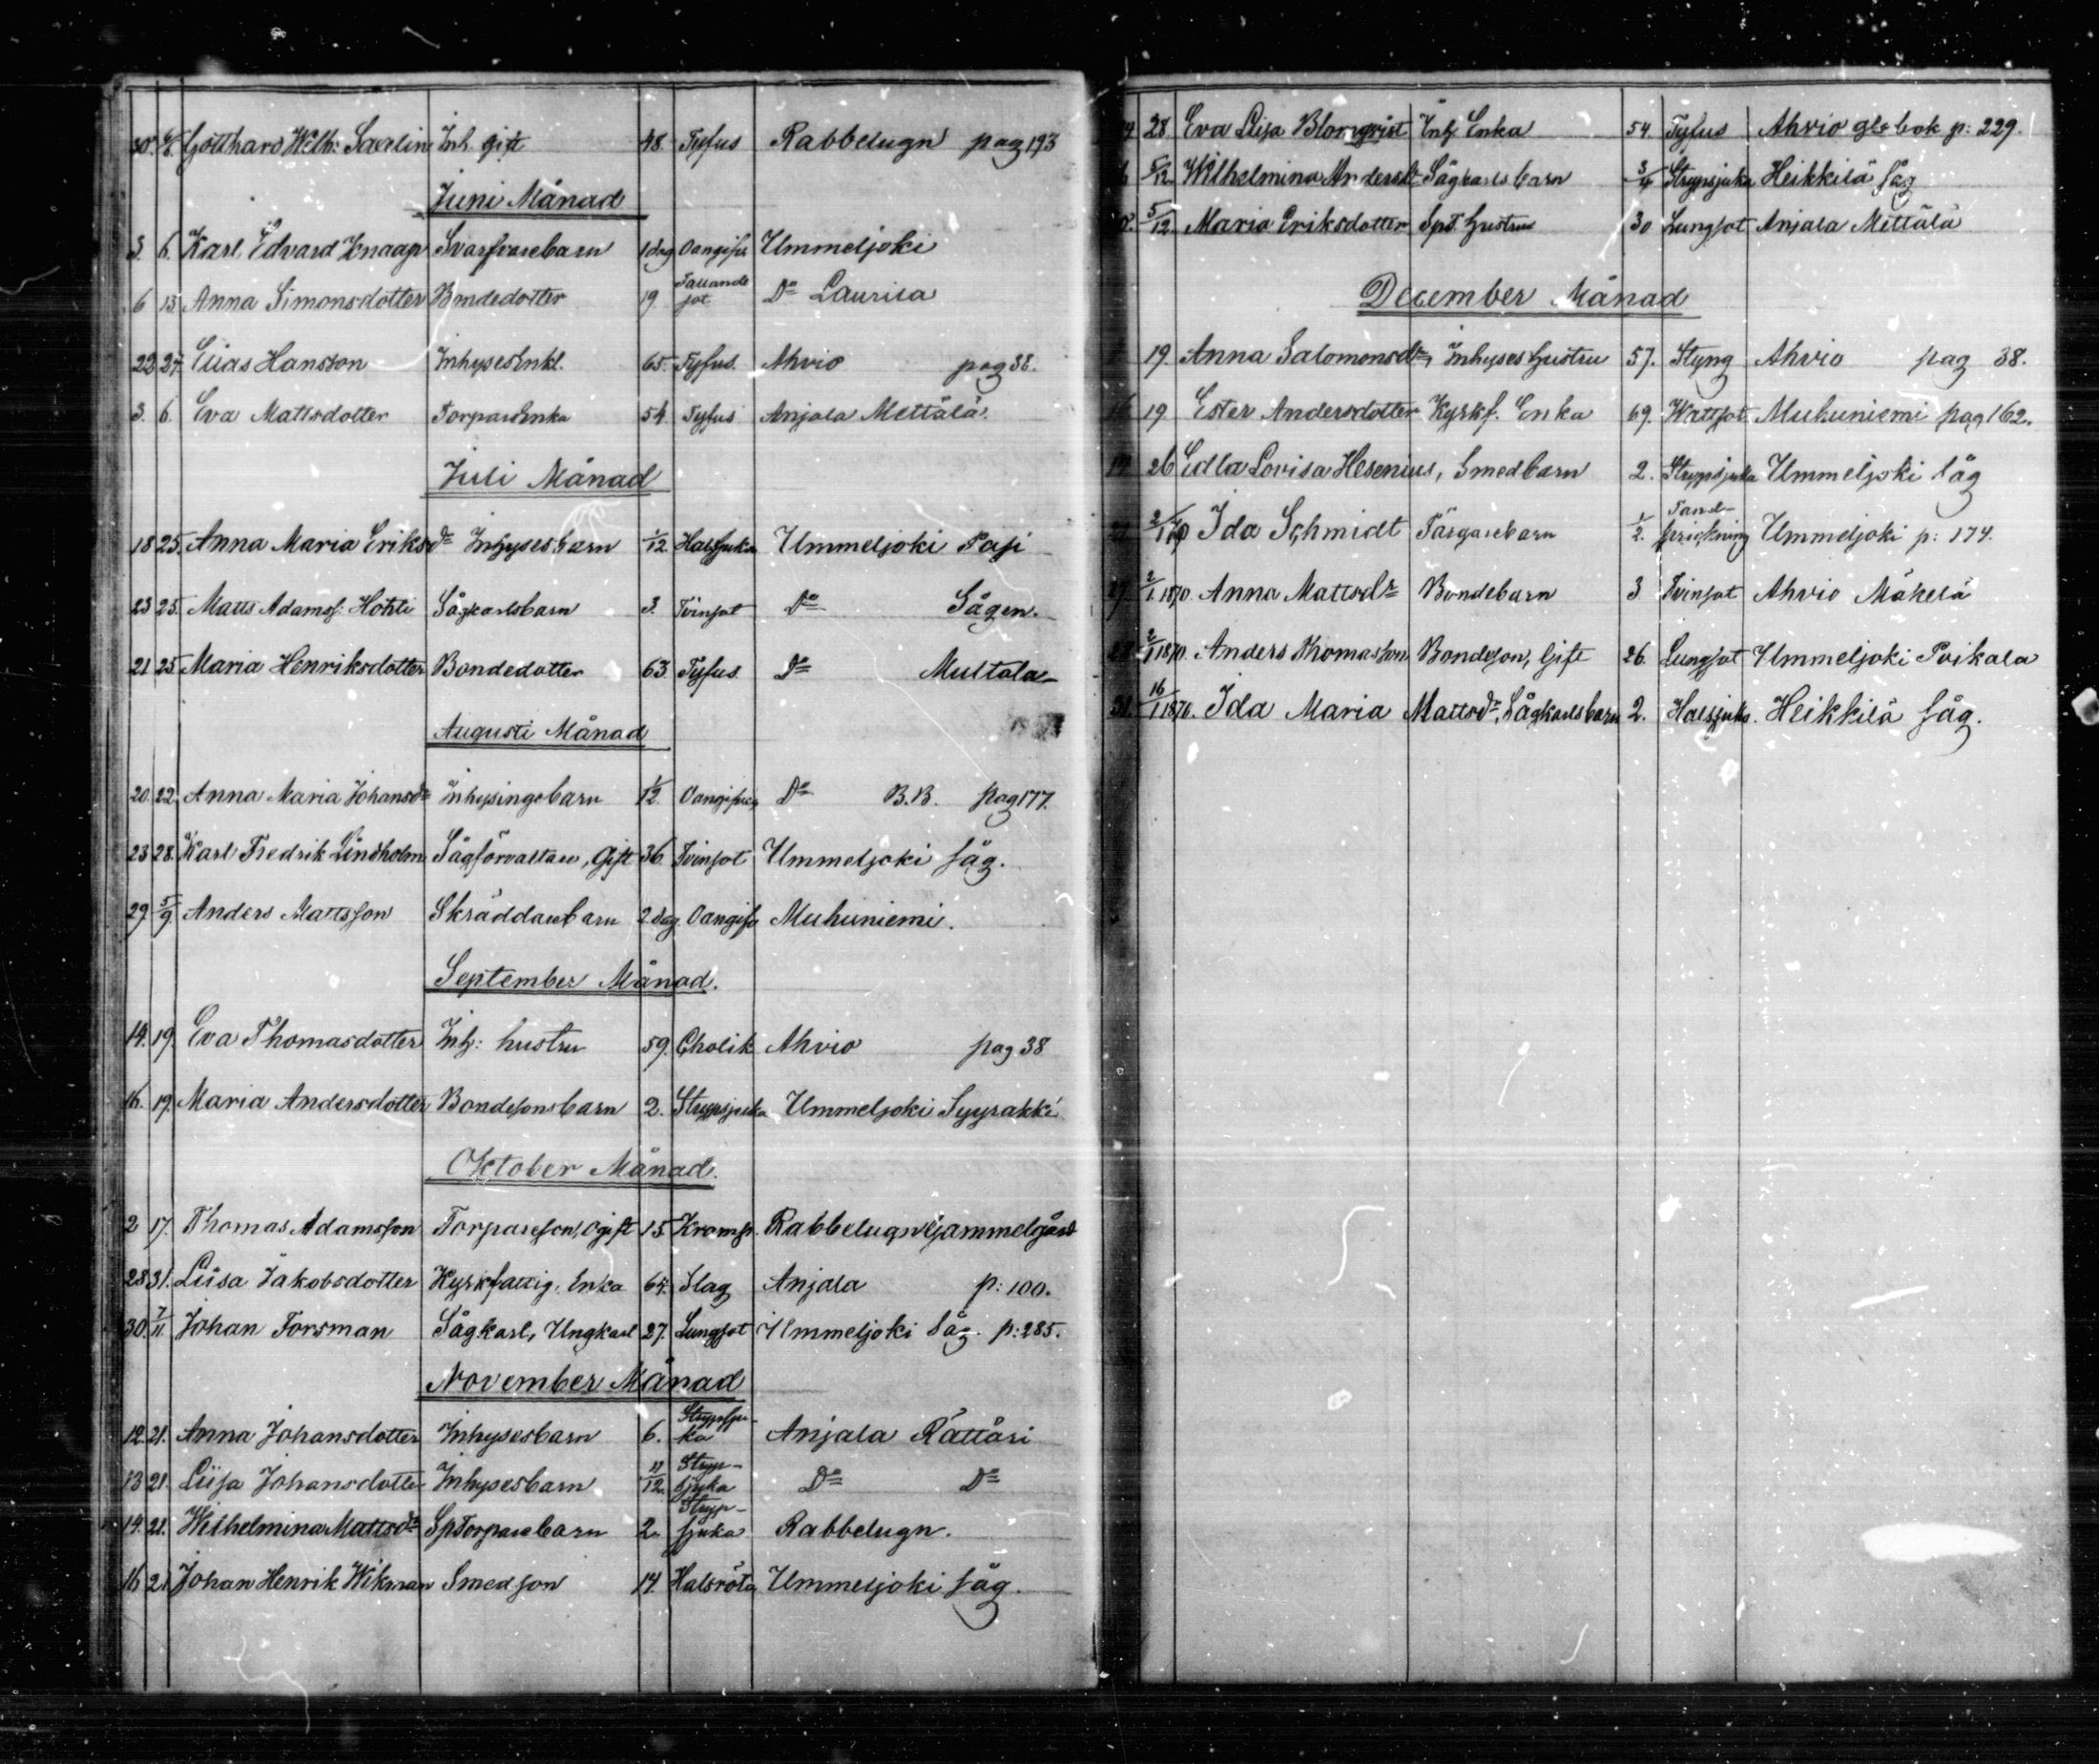 30. 6/6. Gotthard Wilh: Saxlin Inh. Gift 48 Tyfus Rabbelugn pag 193
Juni Månad
3. 6. Karl Edvard Knaap Svarfvarebarn 1 dag Oangifv Ummeljoki
6 13. Anna Simonsdotter Bondedotter 19. Fallande sot Do Laurila
22 27. Elias Hansson Inhyses Enkl. 65. Tyfus. Ahvio pag 38.
3. 6. Eva Mattsdotter Torpare Enka 54. Tyfus Anjala Mettälä.
Juli Månad
18 25. Anna Maria Eriksdr Inhyses barn 1/12 Halssjuka Ummeljoki Pasi
23 25. Matts Adamss: Hohti Sågkarlsbarn 3. Tvinsot Do Sågen.
21 25 Maria Henriksdotter Bondedotter 63. Tyfus. Do Multala
Augusti Månad
20. 22. Anna Maria Johansdr Inhysingebarn 1/12. Oangifven Do B.B. pag 177.
23 28. Karl Fredrik Lindholm Sågförvaltare, Gift 36. Tvinsot Ummeljoki såg.
29 5/9. Anders Mattsson Skräddarebarn 2 dag Oangifv Muhuniemi.
September Månad.
14. 19. Eva Thomasdotter Inh: hustru 59. Cholik Ahvio pag 38
16. 19. Maria Andersdotter Bondesonsbarn 2. Strypsjuka Ummeljoki Syyrakki
Oktober Månad.
2 17. Thomas Adamsson Torpareson, Ogift 15 Kramp. Rabbelugn Gammelgård
28 31. Liisa Jakobsdotter Kyrkfattig. Enka 64. Slag Anjala p: 100.
30. 7/11. Johan Forsman Sågkarl, Ungkarl 27. Lungsot Ummeljoki såg. p: 285.
November Månad
12. 21. Anna Johansdotter Inhysesbarn 6. Strypsjuka Anjala Rättäri
13 21. Liisa Johansdotter Inhysesbarn 11/12. Strypsjuka Do Do
14. 21. Wilhelmina Mattsdr SpTorparebarn 2. Strypsjuka Rabbelugn.
16 21. Johan Henrik Wikman Smedson 14. Halsröta Ummeljoki såg.
28. Eva Lisa Blomqvist Inh Enka 54. Tyfus Ahvio gla bok p: 229.
5/12 Wilhelmina Andersdr Sågkarlsbarn 3/4 Strypsjuka Heikkilä såg
5/12 Maria Eriksdotter Spt. hustru 30 Lungsot Anjala Mettälä
December Månad
19. Anna Salomonsdr, Inhyses hustru 57. Styng Ahvio pag 38.
16 19 Ester Andersdotter Kyrkf. Enka 69. Wattsot Muhuniemi pag 162.
19 26 Edla Lovisa Hesenius, Smedbarn 2. Strypsjuka Ummeljoki såg
21 2/1 70 Ida Schmidt Färgarebarn 1/2. Tandsprickning Ummeljoki p: 174.
27. 2/1 1870. Anna Mattsdr Bondebarn 3 Tvinsot Ahvio Mäkelä
28 2/1 1870. Anders Thomasson Bondeson, Gift 26. Lungsot Ummeljoki Poikala
31. 16/1 1870. Ida Maria Mattsdr, Sågkarlsbarn 2. Halssjuka. Heikkilä såg.